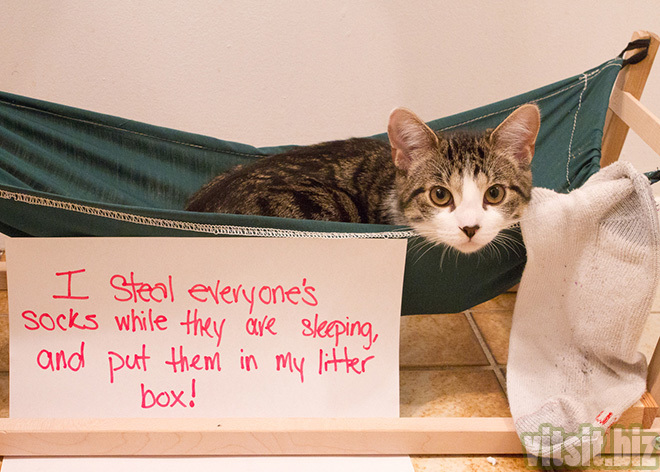 I Steal everyone's
socks while they are sleeping,
and put them in my litter
box!
vitsit.biz